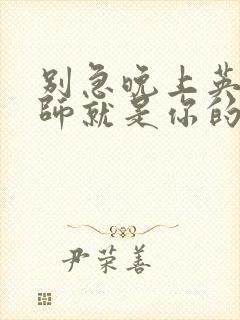 别急晚上英
师就是你的
尹荣善